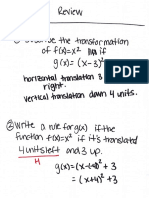 Review
① Describe the transformation
of f(x)=x² if
g(x)=(x-3)²
horizontal translation 3
right.
vertical translation down 4 units.
② Write a rule for g(x) if the
function f(x)=x² if it's translated
4 units left and 3 up.
4
g(x)=(x-(-4))²+3
=(x+4)²+3